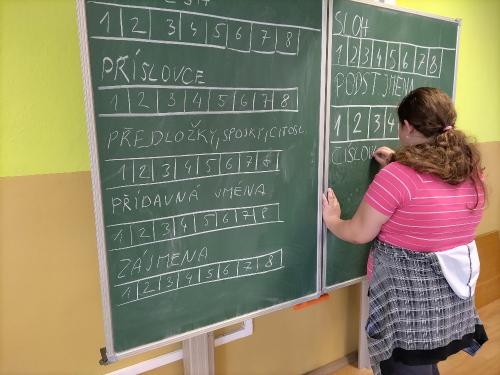 1 2 3 4 5 6 7 8
PŘÍSLOVCE
1 2 3 4 5 6 7 8
PŘEDLOŽKY, SPOJKY, CITOSL
1 2 3 4 5 6 7 8
PŘÍDAVNÁ JMÉNA
1 2 3 4 5 6 7 8
ZÁJMENA
1 2 3 4 5 6 7 8
SLOH
1 2 3 4 5 6 7 8
PODST JMÉNA
1 2 3 4
ČÍSLOV